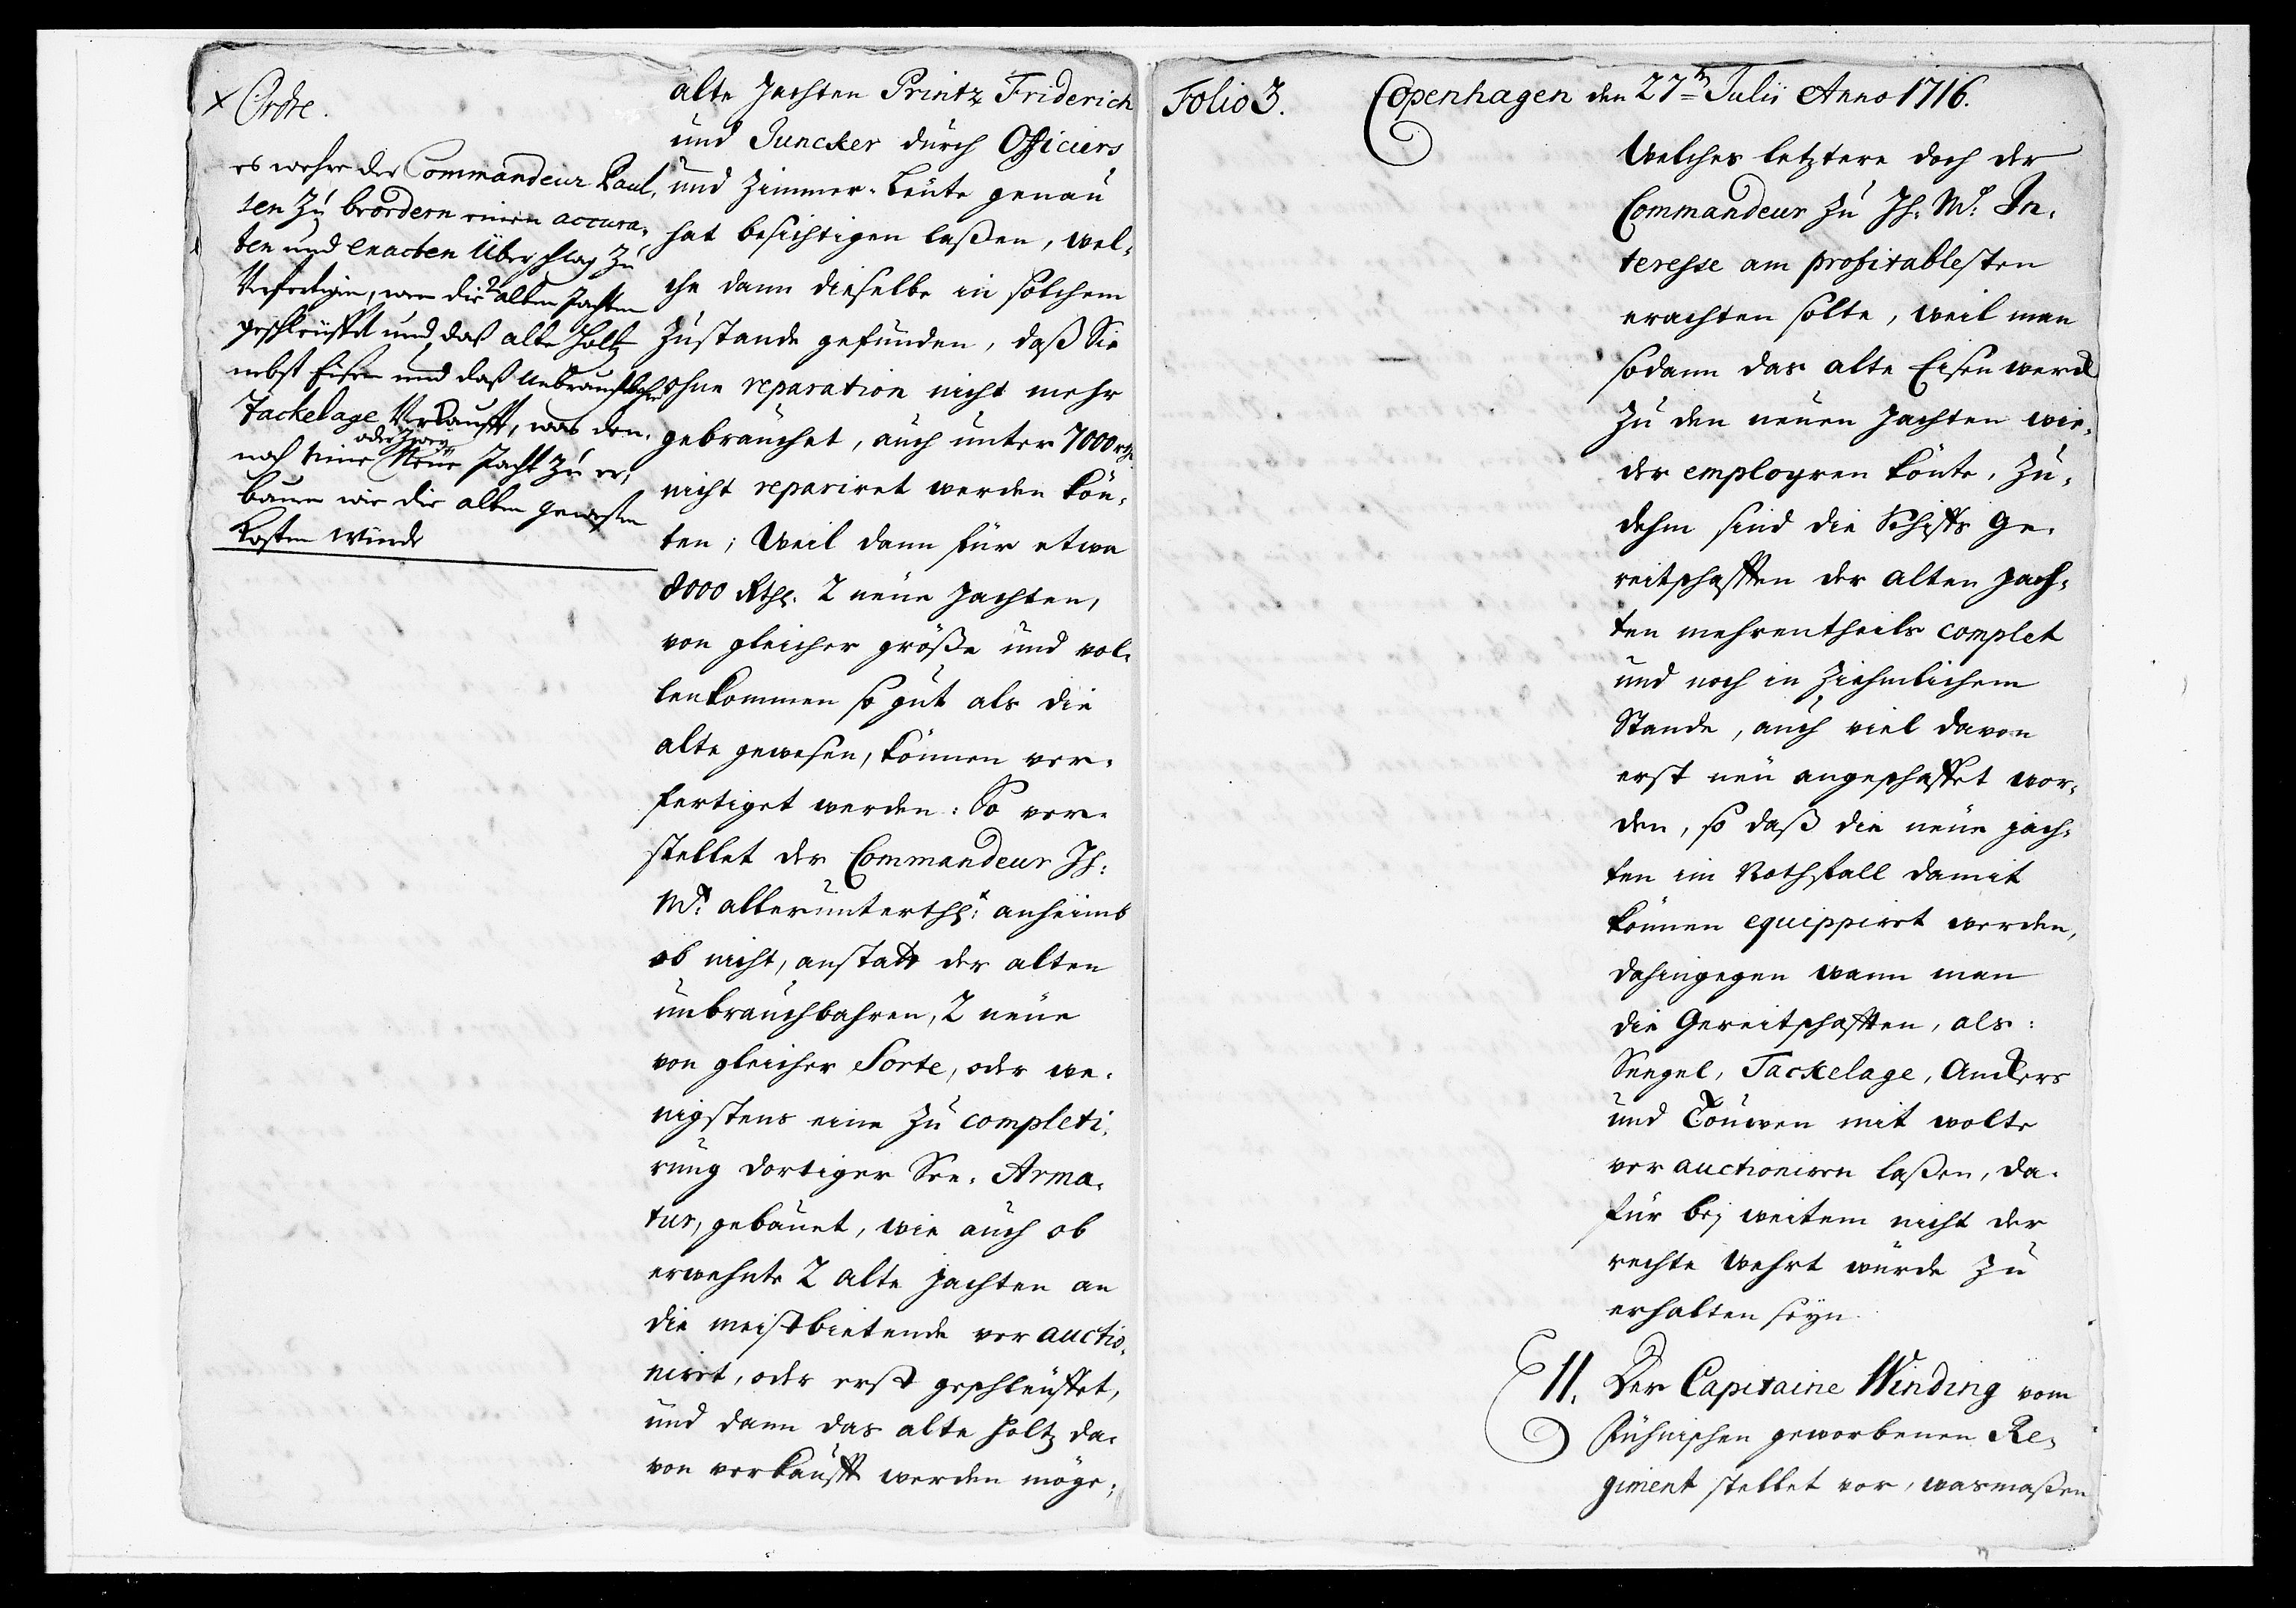 x Ordre.
es wehre der Commandeur Paul,
sen zu beordern einen accura,
ten und exacten Überschlag zu
Verfertigen, wan die 2 alten Jachten
geschleüffet und daß alte Holtz
nebst Eisen und daß unbrauchbahre
Tackelage Verkaufft, was den,
oder zwey
noch eine Neüe Jacht zu er,
bauen wie die alten gewesen
Kosten würde
alte Jachten Printz Friderich
und Juncker durch Officiers
und Zimmer-Leüte genau
hat besichtigen laßen, wel,
che dann dieselbe in solchem
Zustande gefunden, daß Sie
ohne reparation nicht mehr
gebrauchet, auch unter 7000 rthl.
nicht repariret werden kön,
ten; Weil dann für etwa
8000 Rthl. 2 neüe Jachten,
von gleicher größe und vol,
lenkommen so gut als die
alte gewesen, können ver,
fertiget werden: So vor,
stellet der Commandeur Ih:
Mt: allerunterthst: anheimb
ob nicht, anstatt der alten
unbrauchbahren, 2 neüe
von gleicher Sorte, oder we,
nigstens eine zu completi,
rung dortiger See-Arma,
tur, gebauet, wie auch ob
erwehnte 2 alte Jachten an
die meistbietende ver auctio,
niret, oder erst geschleüffet,
und dann das alte Holtz da,
von verkaufft werden möge;
Folio 3.
Copenhagen den 27ten Julii Anno 1716.
Welches letztere doch der
Commandeur zu Ih: Mt: In,
teresse am profitablesten
erachten solte, weil man
sodann das alte Eisenwerck
zu den neuen Jachten wie,
der employren könte, Zu,
dehm sind die Schiffs Ge,
reitschafften der alten Jach,
ten mehrentheils complet
und noch in ziehmlichem
Stande, auch viel davon
erst neü angeschaffet wor,
den, so daß die neüe Jach,
ten im Nothfall damit
können equippirt werden,
dahingegen wann man
die Gereitschafften, als:
Seegel, Tackelage, Anckers
und Touwen mit wolte
ver auctioniren laßen, da,
für bey weitem nicht der
rechte Wehrt würde zu
erhalten seyn.
11. Der Capitaine Winding vom
Fühnischen geworbenen Re,
giment stellet vor, wasmaßen